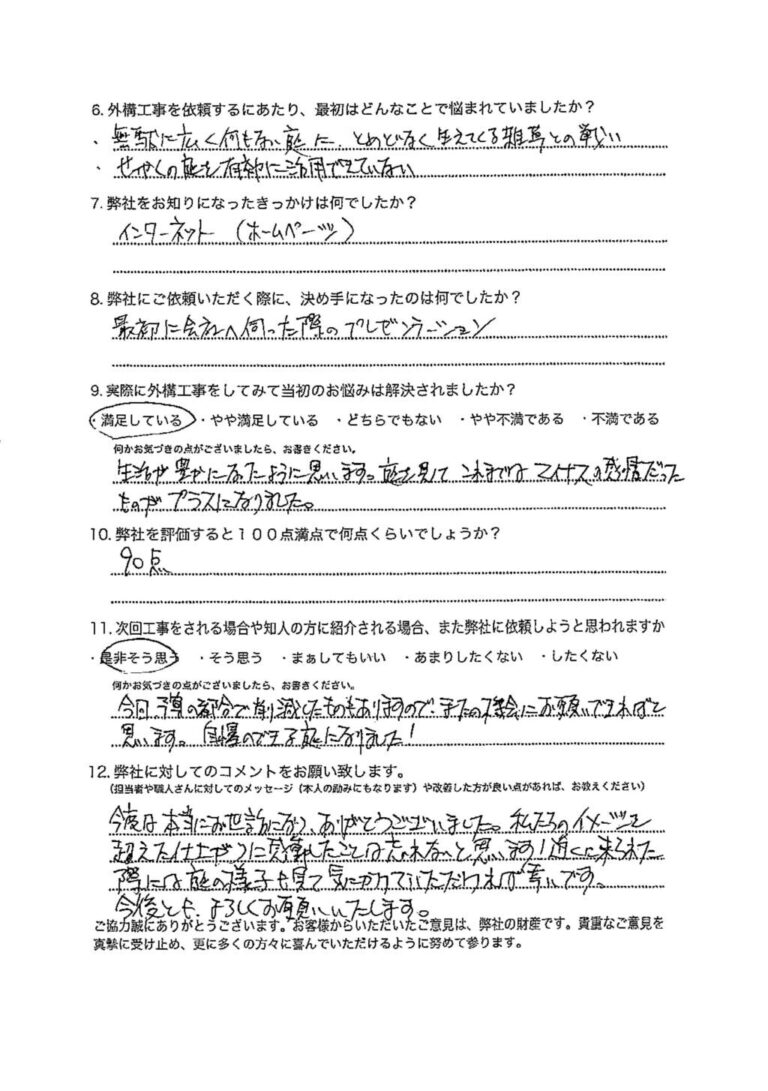 6. 外構工事を依頼するにあたり、最初はどんなことで悩まれていましたか？
・無駄に広く何もない庭に、とめどなく生えてくる雑草との戦い
・せっかくの庭を有効に活用できていない
7. 弊社をお知りになったきっかけは何でしたか？
インターネット （ホームページ）
8. 弊社にご依頼いただく際に、決め手になったのは何でしたか？
最初に会社へ伺った際のプレゼンテーション
9. 実際に外構工事をしてみて当初のお悩みは解決されましたか？
・満足している ・やや満足している ・どちらでもない ・やや不満である ・不満である
何かお気づきの点がございましたら、お書きください。
生活が豊かになったように思います。庭を見て これまでは マイナスの感情だった
ものが プラスになりました。
10. 弊社を評価すると１００点満点で何点くらいでしょうか？
90点
11. 次回工事をされる場合や知人の方に紹介される場合、また弊社に依頼しようと思われますか
・是非そう思う ・そう思う ・まぁしてもいい ・あまりしたくない ・したくない
何かお気づきの点がございましたら、お書きください。
今回、予算の都合で削減したものもありますので、またの機会にお願いできればと
思います。自慢のできる庭になりました！
12. 弊社に対してのコメントをお願い致します。
（担当者や職人さんに対してのメッセージ（本人の励みにもなります）や改善した方が良い点があれば、お教えください）
今度は本当にお世話になり、ありがとうございました。私たちのイメージを
超えた仕上がりに感動したことは忘れないと思います！近くに来られた
際には庭の様子も見て気にかけていただければ幸いです。
今後とも、よろしくお願いいたします。
ご協力誠にありがとうございます。お客様からいただいたご意見は、弊社の財産です。貴重なご意見を
真摯に受け止め、更に多くの方々に喜んでいただけるように努めて参ります。